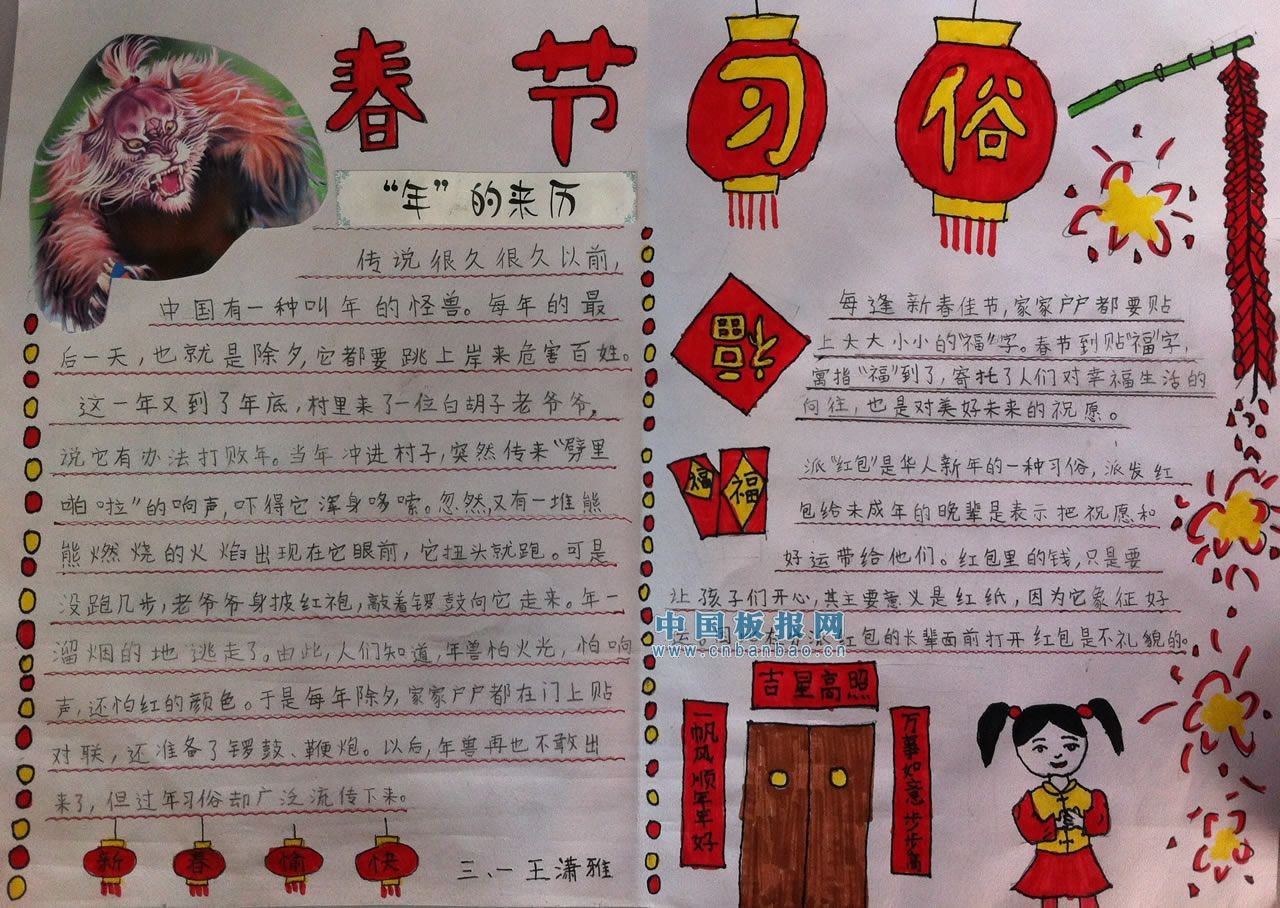 春节习俗
“年”的来历
传说很久很久以前，
中国有一种叫年的怪兽。每年的最
后一天，也就是除夕，它都要跳上岸来危害百姓。
这一年又到了年底，村里来了一位白胡子老爷爷，
说它有办法打败年。当年冲进村子，突然传来“劈里
啪啦”的响声，吓得它浑身哆嗦。忽然，又有一堆熊
熊燃烧的火焰出现在它眼前，它扭头就跑。可是
没跑几步，老爷爷身披红袍，敲着锣鼓向它走来。年一
溜烟的地逃走了。由此，人们知道，年兽怕火光，怕响
声，还怕红的颜色。于是每年除夕，家家户户都在门上贴
对联，还准备了锣鼓、鞭炮。以后，年兽再也不敢出
来了，但过年习俗却广泛流传下来。
新春愉快
三、一 王潇雅
福
每逢新春佳节，家家户户都要贴
上大大小小的“福”字。春节到贴“福”字，
寓指“福”到了，寄托了人们对幸福生活的
向往，也是对美好未来的祝愿。
福
福
派“红包”是华人新年的一种习俗，派发红
包给未成年的晚辈是表示把祝愿和
好运带给他们。红包里的钱，只是要
让孩子们开心，其主要意义是红纸，因为它象征好
运。派红包的长辈面前打开红包是不礼貌的。
中国板报网
www.cnbanbao.cn
吉星高照
一帆风顺年年好
万事如意步步高